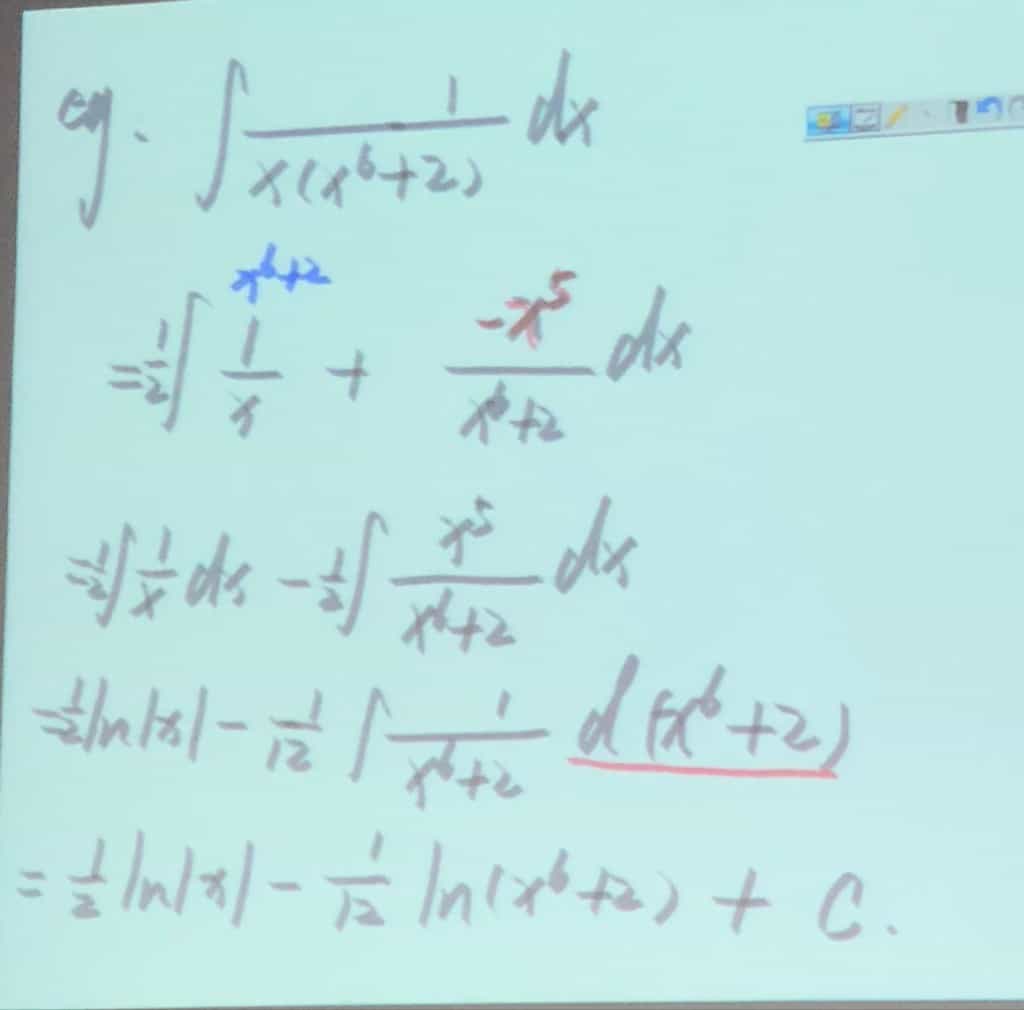 eg. ∫ 1/(x(x⁶+2)) dx
x⁶+2
= 1/2 ∫ 1/x + (-x⁵)/(x⁶+2) dx
= 1/2 ∫ 1/x dx - 1/2 ∫ x⁵/(x⁶+2) dx
= 1/2 ln|x| - 1/12 ∫ 1/(x⁶+2) d(x⁶+2)
= 1/2 ln|x| - 1/12 ln(x⁶+2) + C.